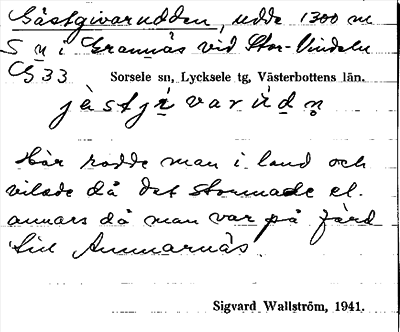 Gästgivarudden, udde 1300 m
S n i Grannäs vid Stor-Vindeln
G 33 Sorsele sn, Lycksele tg, Västerbottens län.
jästjivarúdn
Här rodde man i land och
vilade då det stormade el.
annars då man var på färd
till Ammarnäs.
Sigvard Wallström, 1941.